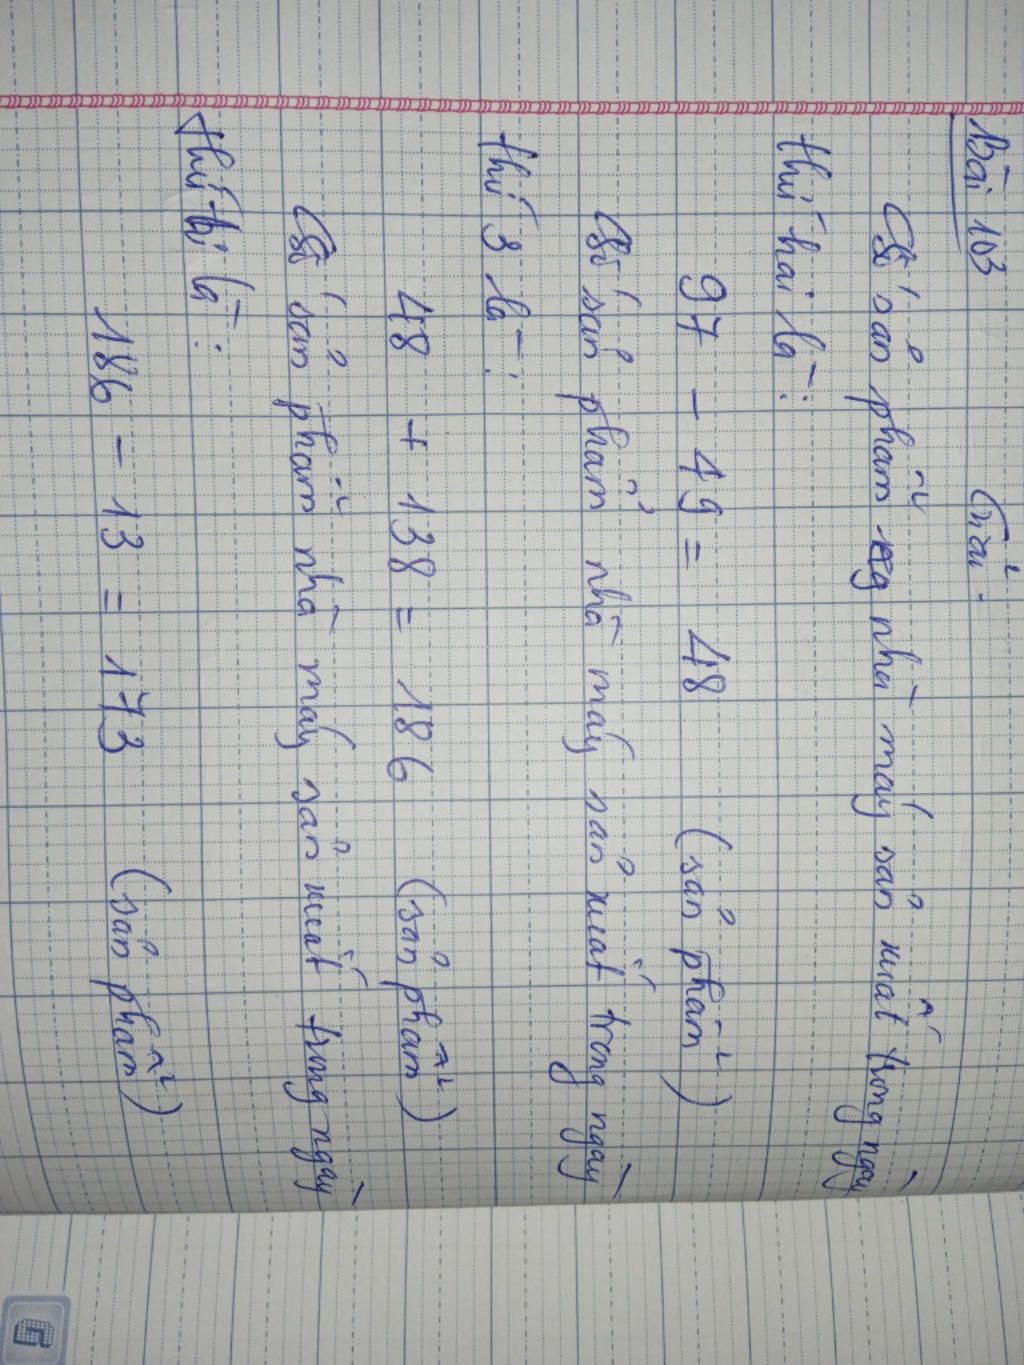 Bài 103
Giải:
Số sản phẩm nhà máy sản xuất trong ngày
thứ hai là:
97 - 49 = 48 (sản phẩm)
Số sản phẩm nhà máy sản xuất trong ngày
thứ 3 là:
48 + 138 = 186 (sản phẩm)
Số sản phẩm nhà máy sản xuất trong ngày
thứ là:
186 - 13 = 173 (sản phẩm)